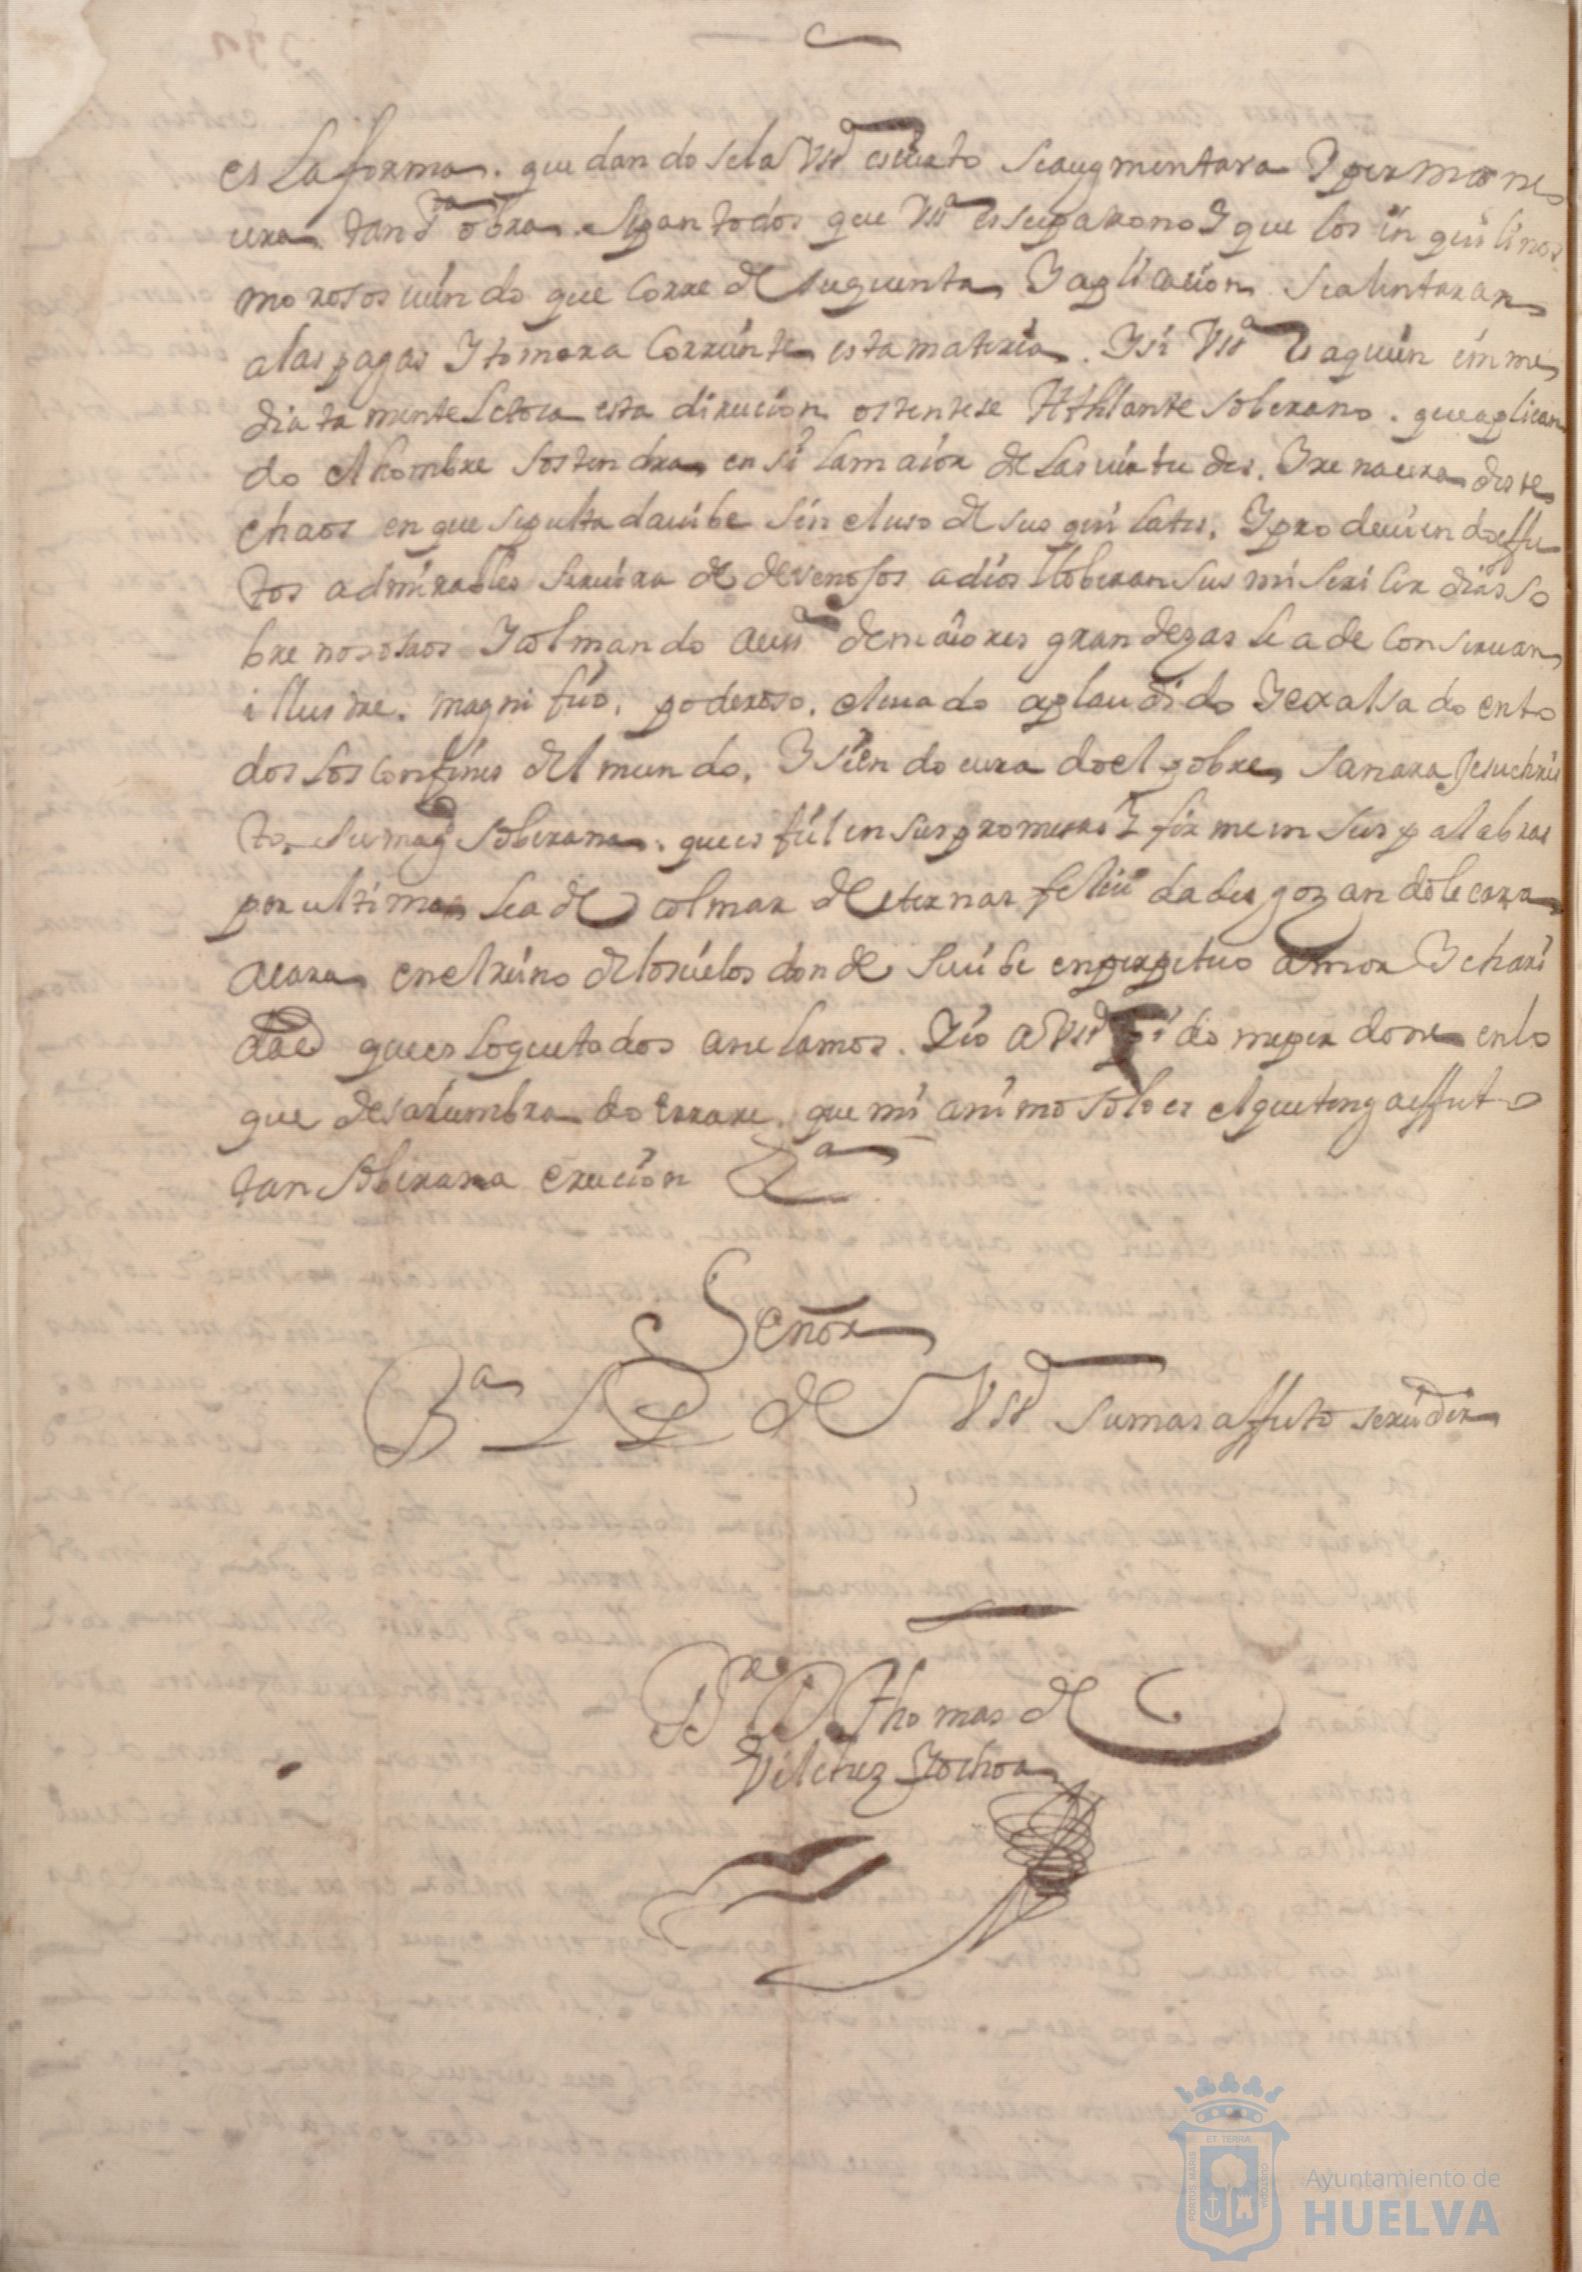 es la forma. que dandosela VSS.ª es cierto se augmentara Y permane
cera tan S.ta obra. Sepan todos que VSS.ª es su patrono Y que los inquilinos
morosos viendo que corre de su quenta Y aplicacion se alentaran
a las pagas Y tomara corriente esta materia. Y si VSS.ª es a quien imme
diatamente le toca esta direccion ostentese Athlante soberano. que aplican
do el hombre sostendra en si la maior de las virtudes. Y renacera deste
chaos en que sepultada vibe sin el uso de sus quilates. Y produciendo effec
tos admirables servira de
a dios lloveran sus misericordias so
bre nosotros Y colmando a VSS.ª de maiores grandezas le a de conservar
illustre. magnifico. poderoso. elevado aplaudido Y exalsado en to
dos los confines del mundo. Y siendo curado el pobre sanara Jesuchris
to. su mag.d soberana. que es fiel en sus promesas Y firme en sus palabras
por ultimo le a de colmar de eternas felicidades gozandole cara
a cara en el reino de los cielos donde se vibe en perpetuo amor Y chari
dad que es lo que todos anelamos. Y io a VSS.ª pido me perdone en lo
que desalumbrado errare. que mi animo solo es el que tenga effecto
tan soberana ereccion
Señor
B.ª L P de VSS.ª su mas affecto servidor
B.r D. Thomas de
Vilchez Y ochoa
PORTUS MARIS
ET TERRA
CUSTODIA
Ayuntamiento de
HUELVA